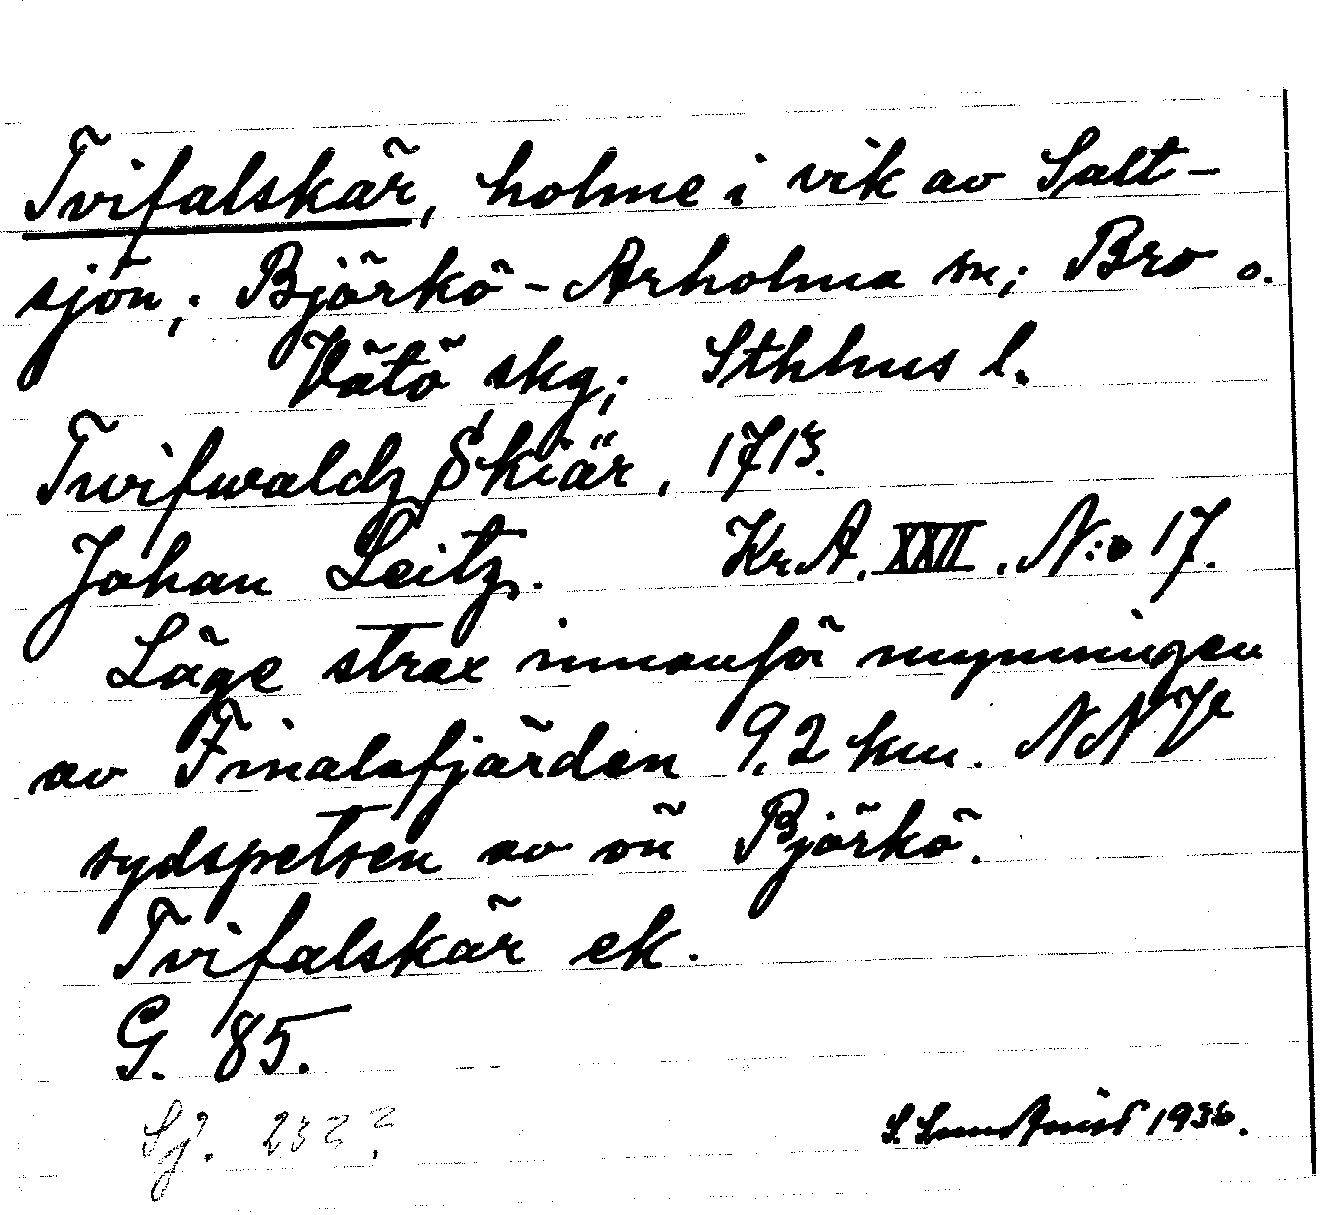 Tvifalskär, holme i vik av Salt-
sjön; Björkö-Arholma sn; Bro o.
Vätö skg; Sthhus l.
Twifwaldz Skiär, 1713.
Johan Leitz. Kr.A. XXII. N:o 17.
Läge strax innanför mynningen
av Finalafjärden 9,2 km. NNV
sydspetsen av ön Björkö.
Tvifalskär ek.
G. 85.
Sj. 232?
S. Lundqvist 1936.